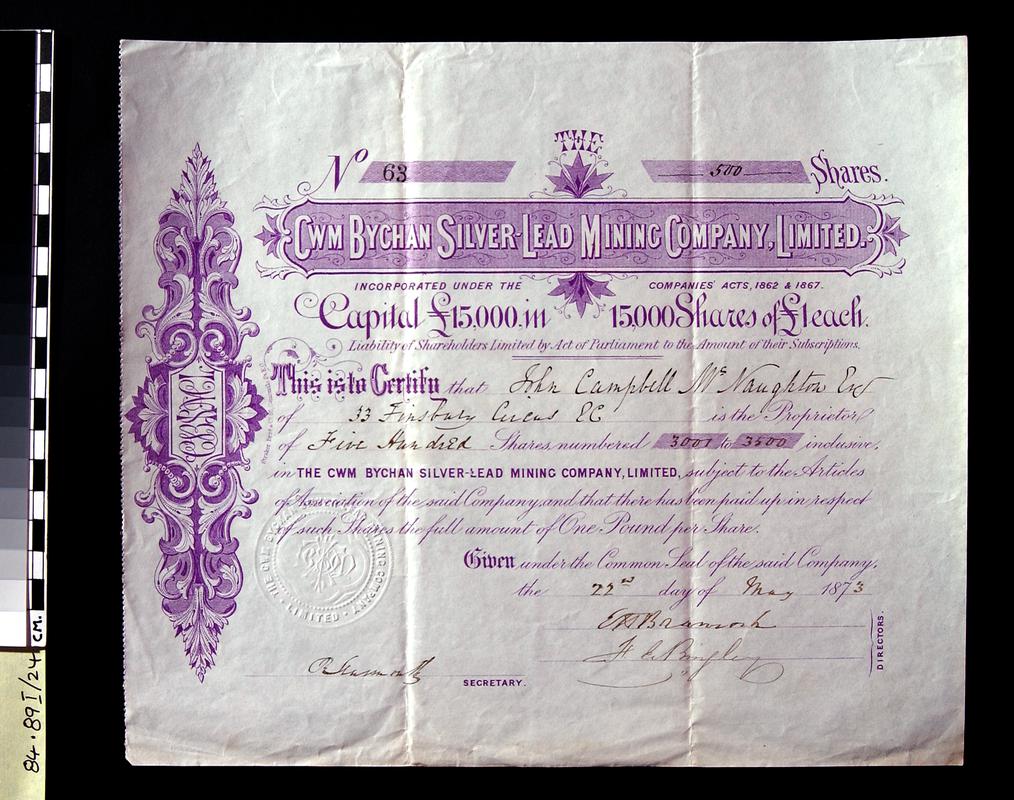 THE
No 63 500 Shares.
CWM BYCHAN SILVER-LEAD MINING COMPANY, LIMITED.
INCORPORATED UNDER THE COMPANIES' ACTS, 1862 & 1867.
Capital £15,000, in 15,000 Shares of £1 each.
Liability of Shareholders Limited by Act of Parliament to the Amount of their Subscriptions.
This is to Certify that John Campbell McNaughton Esq
of 33 Finsbury Circus EC is the Proprietor
of Five Hundred Shares, numbered 3001 to 3500 inclusive,
in THE CWM BYCHAN SILVER-LEAD MINING COMPANY, LIMITED, subject to the Articles
of Association of the said Company, and that there has been paid up in respect
of such Shares the full amount of One Pound per Share.
Given under the Common Seal of the said Company,
the 22nd day of May 1873
DIRECTORS.
SECRETARY.
THE CWM BYCHAN SILVER-LEAD MINING COMPANY LIMITED
CM.
84.89I/24